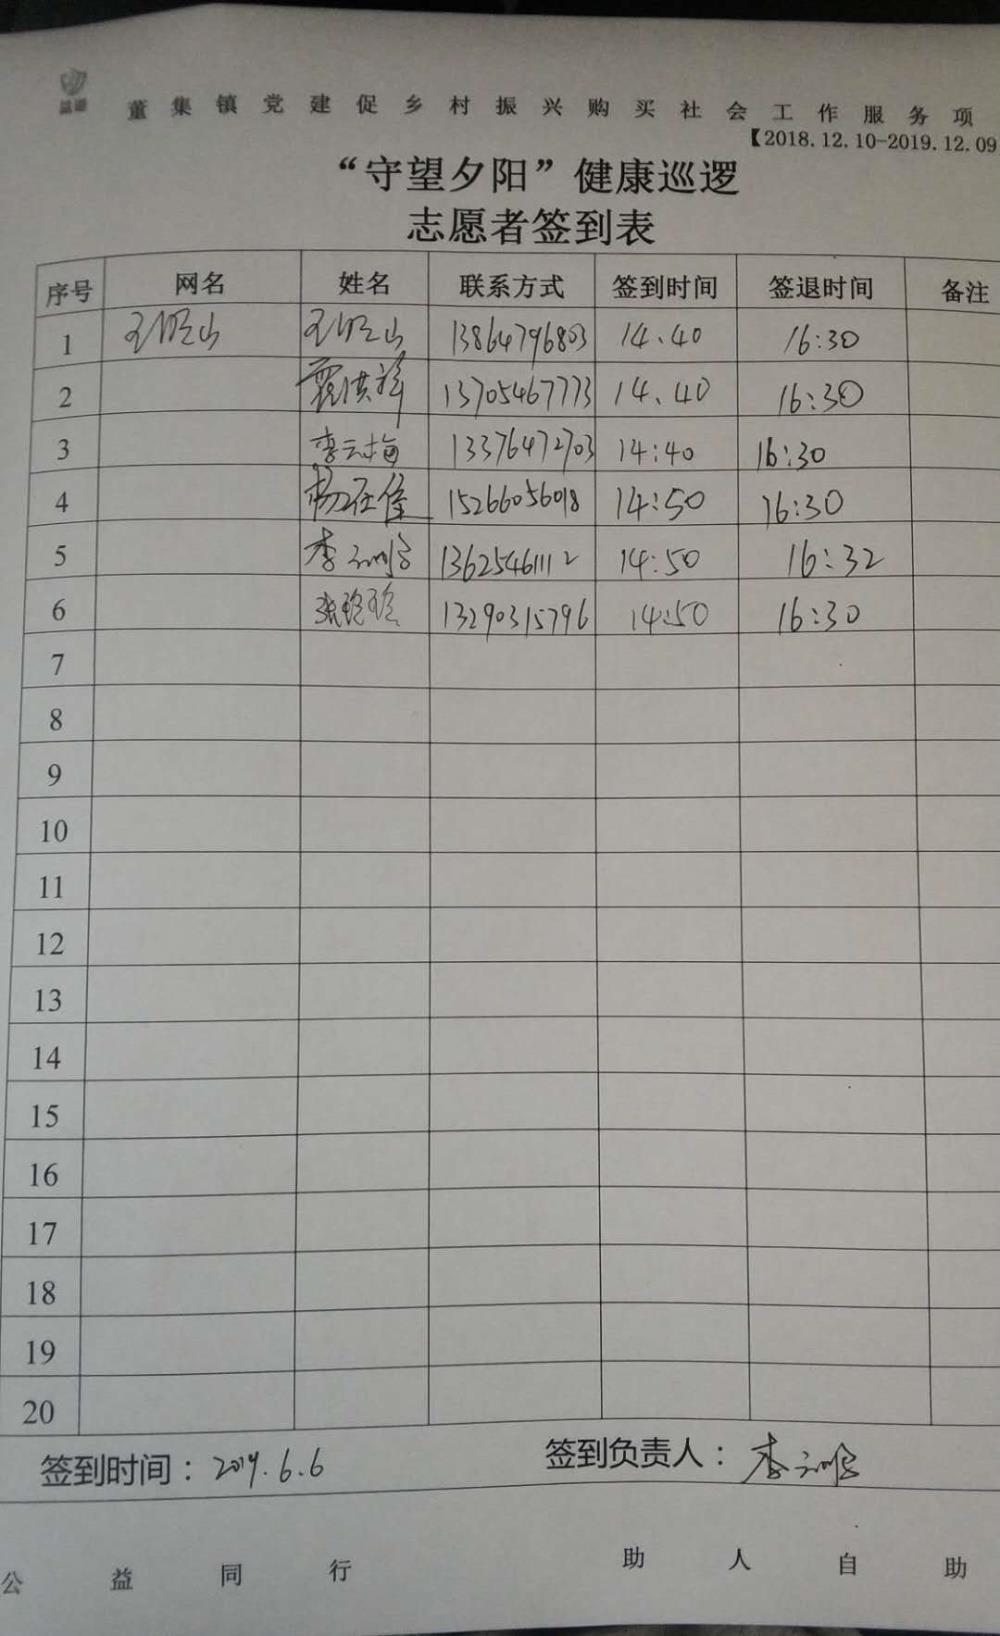 益诺
董集镇党建促乡村振兴购买社会工作服务项
【2018.12.10-2019.12.09
“守望夕阳”健康巡逻
志愿者签到表
序号 网名 姓名 联系方式 签到时间 签退时间 备注
1 13864796803 14.40 16:30
2 13705467773 14.40 16:30
3 李云梅 13376472703 14:40 16:30
4 15266056018 14:50 16:30
5 13625461112 14:50 16:32
6 张玲玲 13290315796 14:50 16:30
7
8
9
10
11
12
13
14
15
16
17
18
19
20
签到时间：2019.6.6 签到负责人：
公益同行 助人自助